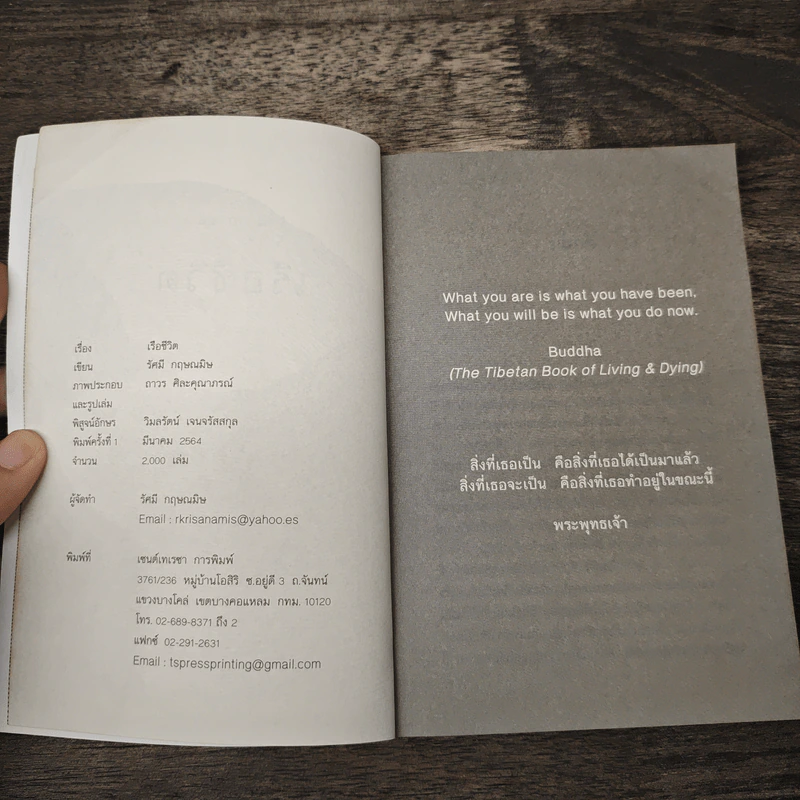 เรื่อง เรือชีวิต
เขียน รัศมี กฤษณมิษ
ภาพประกอบ ถาวร ศิละคุณาภรณ์
และรูปเล่ม
พิสูจน์อักษร วิมลรัตน์ เจนจรัสสกุล
พิมพ์ครั้งที่ 1 มีนาคม 2564
จำนวน 2,000 เล่ม
ผู้จัดทำ รัศมี กฤษณมิษ
Email : rkrisanamis@yahoo.es
พิมพ์ที่ เซนต์เทเรซา การพิมพ์
3761/236 หมู่บ้านโอสิริ ซ.อยู่ดี 3 ถ.จันทน์
แขวงบางโคล่ เขตบางคอแหลม กทม. 10120
โทร. 02-689-8371 ถึง 2
แฟกซ์ 02-291-2631
Email : tspressprinting@gmail.com
What you are is what you have been,
What you will be is what you do now.
Buddha
(The Tibetan Book of Living & Dying)
สิ่งที่เธอเป็น คือสิ่งที่เธอได้เป็นมาแล้ว
สิ่งที่เธอจะเป็น คือสิ่งที่เธอทำอยู่ในขณะนี้
พระพุทธเจ้า